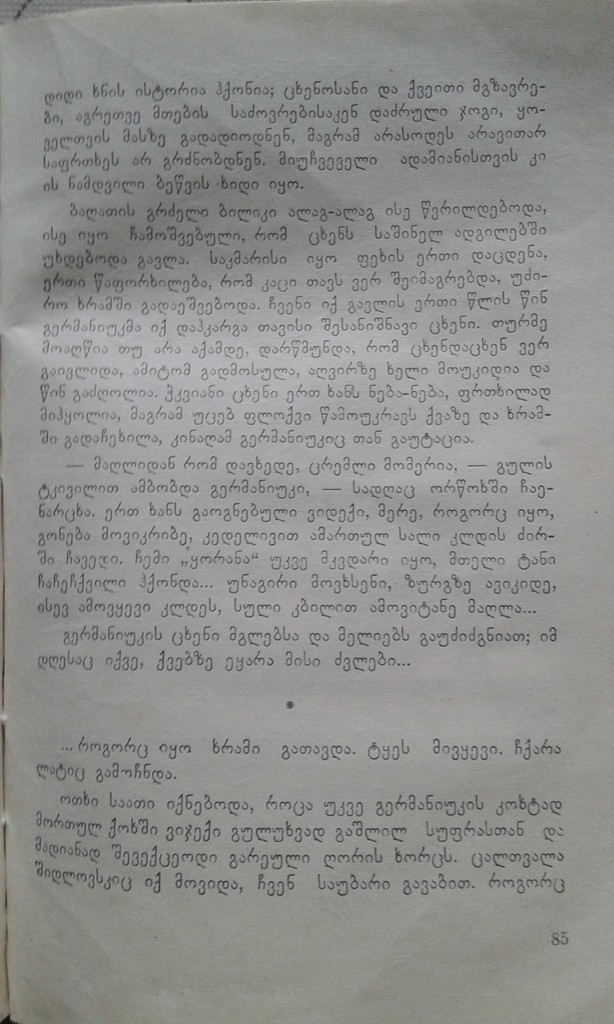 დიდი ხნის ისტორია ჰქონია; ცხენოსანი და ქვეითი მგზავრე-
ბი, აგრეთვე მთების საძოვრებისაკენ დაძრული ჯოგი, ყო-
ველთვის მასზე გადადიოდნენ, მაგრამ არასოდეს არავითარ
საფრთხეს არ გრძნობდნენ. მიუჩვეველი ადამიანისთვის კი
ის ნამდვილი ბეწვის ხიდი იყო.
ბაღათის გრძელი ბილიკი ალაგ-ალაგ ისე წვრილდებოდა,
ისე იყო ჩამოშვებული, რომ ცხენს საშინელ ადგილებში
უხდებოდა გავლა. საკმარისი იყო ფეხის ერთი დაცდენა,
ერთი წაფორხილება, რომ კაცი თავს ვერ შეიმაგრებდა, უძი-
რო ხრამში გადაეშვებოდა. ჩვენი იქ გავლის ერთი წლის წინ
გერმანიუკმა იქ დაჰკარგა თავისი შესანიშნავი ცხენი. თურმე
მოაღწია თუ არა აქამდე, დარწმუნდა, რომ ცხენდაცხენ ვერ
გაივლიდა, ამიტომ გადმოსულა, აღვირზე ხელი მოუკიდია და
წინ გაძღოლია. ჭკვიანი ცხენი ერთ ხანს ნება-ნება, ფრთხილად
მიჰყოლია, მაგრამ უცებ ფლოქვი წამოუკრავს ქვაზე და ხრამ-
ში გადაჩეხილა, კინაღამ გერმანიუკიც თან გაუტაცია.
— მაღლიდან რომ დავხედე, ცრემლი მომერია, — გულის
ტკივილით ამბობდა გერმანიუკი, — სადღაც ორწოხში ჩაე-
ნარცხა. ერთ ხანს გაოგნებული ვიდექი, მერე, როგორც იყო,
გონება მოვიკრიბე, კედელივით ამართულ სალი კლდის ძირ-
ში ჩავედი. ჩემი „ყორანა“ უკვე მკვდარი იყო, მთელი ტანი
ჩაჩეჩქვილი ჰქონდა... უნაგირი მოვხსენი, ზურგზე ავიკიდე,
ისევ ამოვყევი კლდეს, სული კბილით ამოვიტანე მაღლა...
გერმანიუკის ცხენი მგლებსა და მელიებს გაუძიძგნიათ; იმ
დღესაც იქვე, ქვებზე ეყარა მისი ძვლები...
*
...როგორც იყო ხრამი გათავდა. ტყეს მივყევი. ჩქარა
ლატიც გამოჩნდა.
ოთხი საათი იქნებოდა, როცა უკვე გერმანიუკის კოხტად
მორთულ ქოხში ვიჯექი გულუხვად გაშლილ სუფრასთან და
მადიანად შევექცეოდი გარეული ღორის ხორცს. ცალთვალა
შიდლოვსკიც იქ მოვიდა, ჩვენ საუბარი გავაბით. როგორც
85